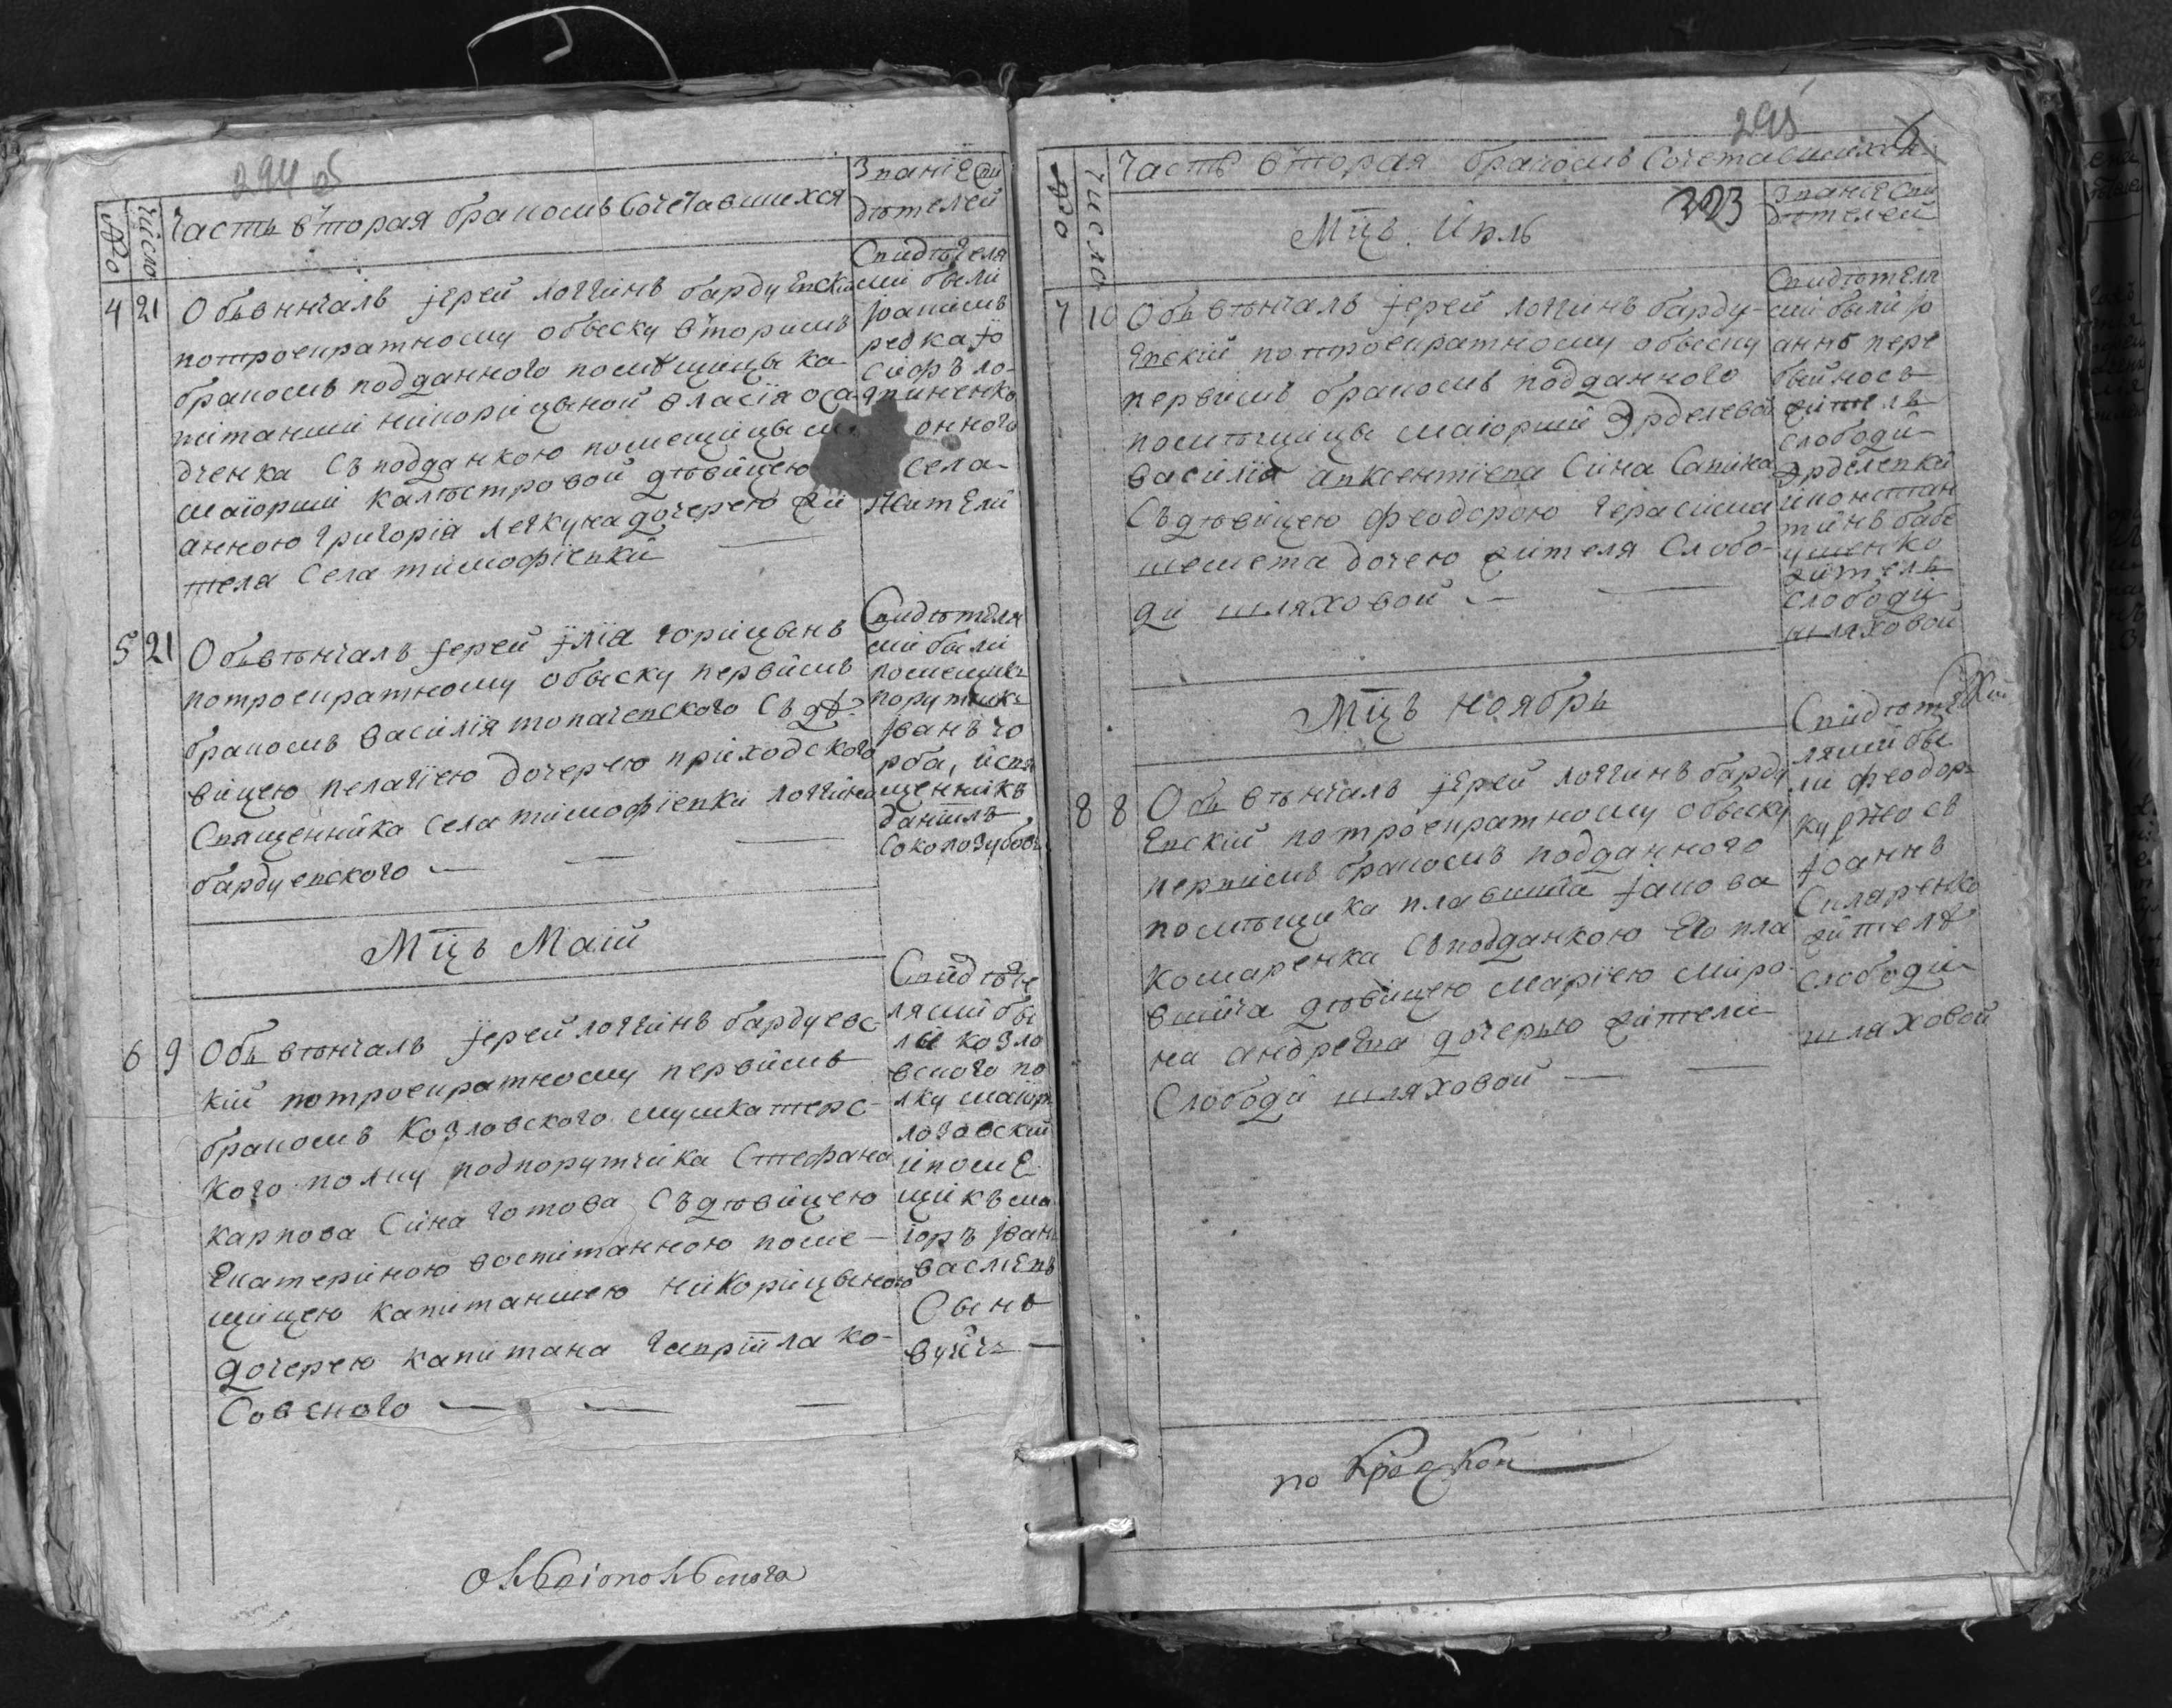 294 об
Число
Часть вторая браком Сочетавшихся
Знание Сви
дѣтелей
4 21
Обвѣнчалъ іерей логгинъ бардуевскій
потроекратному обыску вторимъ
бракомъ подданного помѣщицы ка
питанши никорицыной власія оса
дченка Съ подданкою помещицы
маіорши калѣстровой дѣвицею
анною григорія легкуна дочерею жи
теля Села тимофіевки
Свидѣтеля
ми были
редка іо
сифъ ло
гвиненко
оного
Села
Жители
5 21
Обвѣнчалъ іерей іліа горицынъ
потроекратному обыску первимъ
бракомъ василія топачевского Съ дѣ
вицею пелагіею дочерею приходского
Священника Села тимофіевки логгина
бардуевского
Свидѣтеля
ми были
помещикъ
порутчикъ
іванъ чо
рба, и свя
щенникъ
даніилъ
Соколозубовъ
Мцъ Маій
6 9
Обвѣнчалъ іерей логгинъ бардуевс
кій потроекратному первимъ
бракомъ Козловского мушкатерс
кого полку подпорутчика Стефана
карпова Сина готова Съ дѣвицею
Екатериною воспитанною поме
щицею капитаншею никорицыною
дочерею капитана гавріила ко
Совского
Свидѣте
лями бы
ли козло
вского по
лку маіоръ
лозовскій
и поме
щикъ ма
іоръ іванъ
васліевъ
Сынъ
вуичъ
295
323
Число
Часть вторая браком Сочетавшихся
Мцъ Июль
Знание Сви
дѣтелей
7 10
Обвѣнчалъ іерей логгинъ барду
евскій потроекратному обыску
первимъ бракомъ подданного
помѣщицы маіорши Эрделевой
василія авксентіева Сина Савина
Съ дѣвицею феодорою герасима
шемета дочею жителя Слобо
ди шляховой
Свидѣтеля
ми были іо
аннъ пере
быйносъ
житель
слободи
Эрделевки
и констан
тинъ бабе
ушенко
житель
слободи
шляховой
Мцъ Ноябрь
8 8
Обвѣнчалъ іерей логгинъ барду
Евскій потроекратному обыску
первимъ бракомъ подданного
помѣщика плавшича іакова
комаренка Съ подданкою Его пла
вшича дѣвицею маріею миро
на андреева дочерью жители
Слободи шляховой
Свидѣте
лями бы
ли феодоръ
іоаннъ
Скляренко
жителѣ
Слободи
шляховой